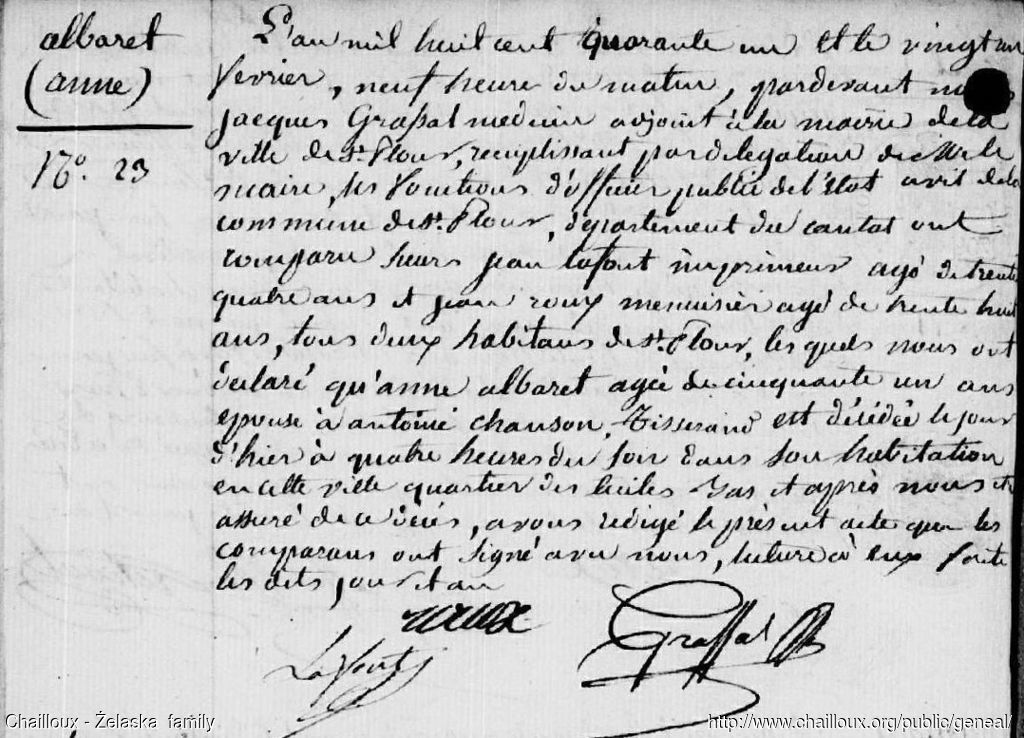 albaret
(anne)
N.º 23
L'an mil huit cent quarante un et le vingt un
fevrier, neuf heure du matin, pardevant
jacques Grassal medecin adjoint à la mairie de la
ville de St. Flour, remplissant par délégation de Mr le
maire, les fonctions d'officier public de l'état civil de la
commune de St. Flour, département du cantal ont
comparu sieurs jean lafont imprimeur agé de trente
quatre ans et jean roux menuisier agé de trente huit
ans, tous deux habitans de St. Flour, les quels nous ont
déclaré qu'anne albaret agée de cinquante un ans
epouse à antoine chanson, Tisserand est décédée le jour
d'hier à quatre heures du soir dans son habitation
en cette ville quartier des et après nous etre
assuré de ce décés, avons rédigé le présent acte que les
comparans ont signé avec nous, lecture à eux faite
les dits jour et an
roux
Lafont
Grassal
Chailloux - Żelaska family
http://www.chailloux.org/public/geneal/